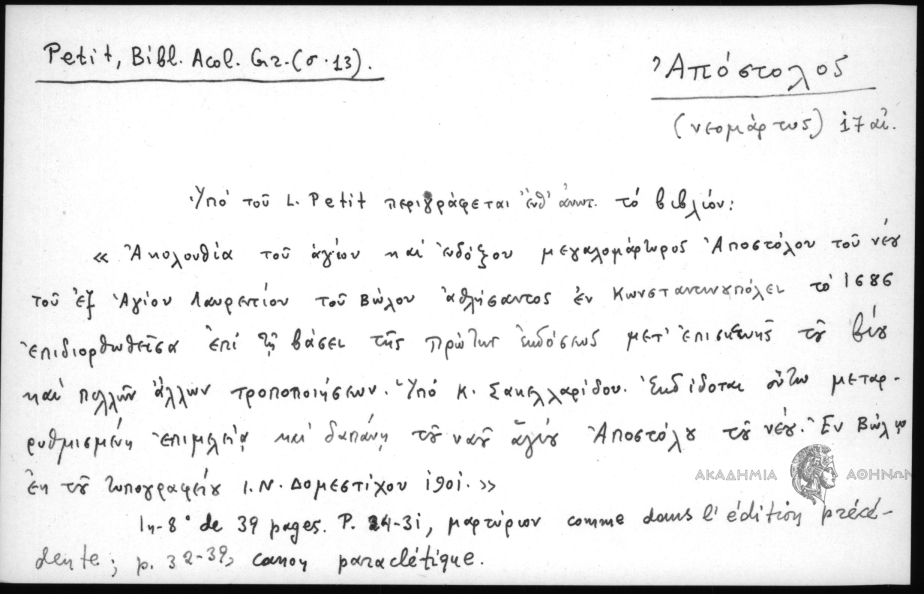 Petit, Bibl. Acol. Gr. (σ. 13).
Ἀπόστολος
(νεομάρτυς) 17 αἰ.
Ὑπό τοῦ L. Petit περιγράφεται ἐνθ' ἀνωτ. τό βιβλίον:
« Ἀκολουθία τοῦ ἁγίου καί ἐνδόξου μεγαλομάρτυρος Ἀποστόλου τοῦ νέου
τοῦ ἐξ Ἁγίου Λαυρεντίου τοῦ Βώλου ἀθλήσαντος ἐν Κωνσταντινουπόλει τό 1686
ἐπιδιορθωθεῖσα ἐπί τῇ βάσει τῆς πρώτης ἐκδόσεως μετ' ἐπισκευῆς τοῦ βίου
καί πολλῶν ἄλλων τροποποιήσεων. Ὑπό Κ. Σακελλαρίδου. Ἐκδίδοται οὕτω μεταρ-
ρυθμισμένη ἐπιμελείᾳ καί δαπάνῃ τοῦ ναοῦ ἁγίου Ἀποστόλου τοῦ νέου. Ἐν Βώλῳ
ἐκ τοῦ τυπογραφείου Ι. Ν. Δομεστίχου 1901. »
ΑΚΑΔΗΜΙΑ ΑΘΗΝΩΝ
In-8° de 39 pages. P. 24-31, μαρτύριον comme dans l'édition précé-
dente; p. 32-39, canon paraclétique.